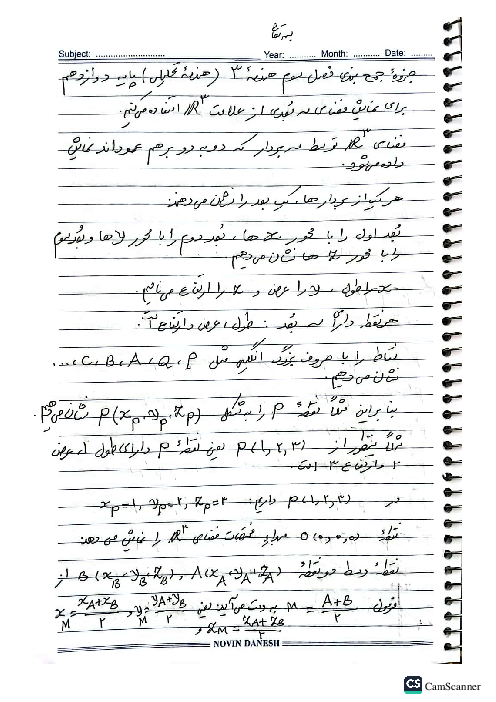 بسمه تعالی
Subject: Year: Month: Date:
جزوهٔ جمع بندی فصل سوم هندسهٔ ۳ (هندسهٔ تحلیلی) پایهٔ دوازدهم
برای نمایش فضای سه بعدی از علامت ℝ³ استفاده می‌کنیم.
فضای ℝ³ توسط سه بردار که دو به دو بر هم عموداند نمایش
داده می‌شود.
هر یک از بردارها، یک بعد را نشان می‌دهند.
بُعد اول را با محور xها، بُعد دوم را با محور yها و بُعد سوم
را با محور zها نشان می‌دهیم.
x را طول، y را عرض و z را ارتفاع می‌نامیم.
هر نقطه دارای سه بعد: طول، عرض و ارتفاع است.
نقاط را با حروف بزرگ انگلیسی مثل P، Q، A، B، C، ...
نشان می‌دهیم.
بنابراین مثلاً نقطهٔ P را به شکل P(xₚ, yₚ, zₚ) نشان می‌دهیم.
مثلاً منظور از P(۱,۲,۳) یعنی نقطهٔ P دارای طول ۱، عرض
۲ و ارتفاع ۳ است.
در P(۱,۲,۳) داریم: xₚ=۱, yₚ=۲, zₚ=۳
نقطهٔ O(۰,۰,۰) مبدأ مختصات فضای ℝ³ را نمایش می‌دهد.
نقطهٔ وسط دو نقطهٔ A(x_A, y_A, z_A) و B(x_B, y_B, z_B) از
فرمول M = (A+B)/۲ به دست می‌آید یعنی x_M = (x_A+x_B)/۲ ، y_M = (y_A+y_B)/۲
و z_M = (z_A+z_B)/۲
NOVIN DANESH
CS CamScanner